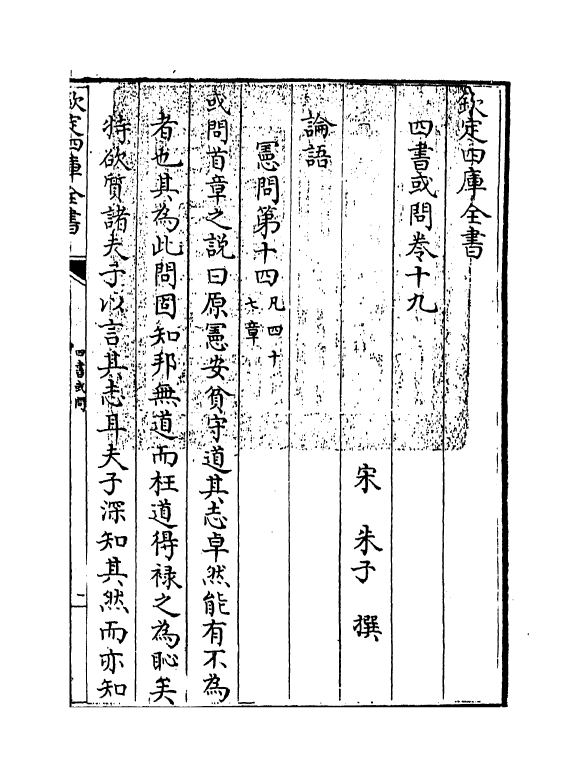 欽定四庫全書
四書或問卷十九
宋 朱子 撰
論語
憲問第十四凡四十
七章
或問首章之說曰原憲安貧守道其志卓然能有不為
者也其為此問固知邦無道而枉道得祿之為恥矣
特欲質諸夫子以言其志耳夫子深知其然而亦知
欽定四庫全書
四書或問
一